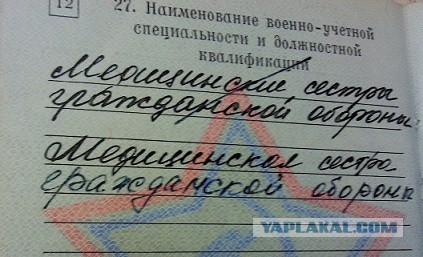 12
27. Наименование военно-учетной
специальности и должностной
квалификации
Медицинские сестры
гражданской обороны.
Медицинская сестра
гражданской обороны
YAPLAKAL.COM